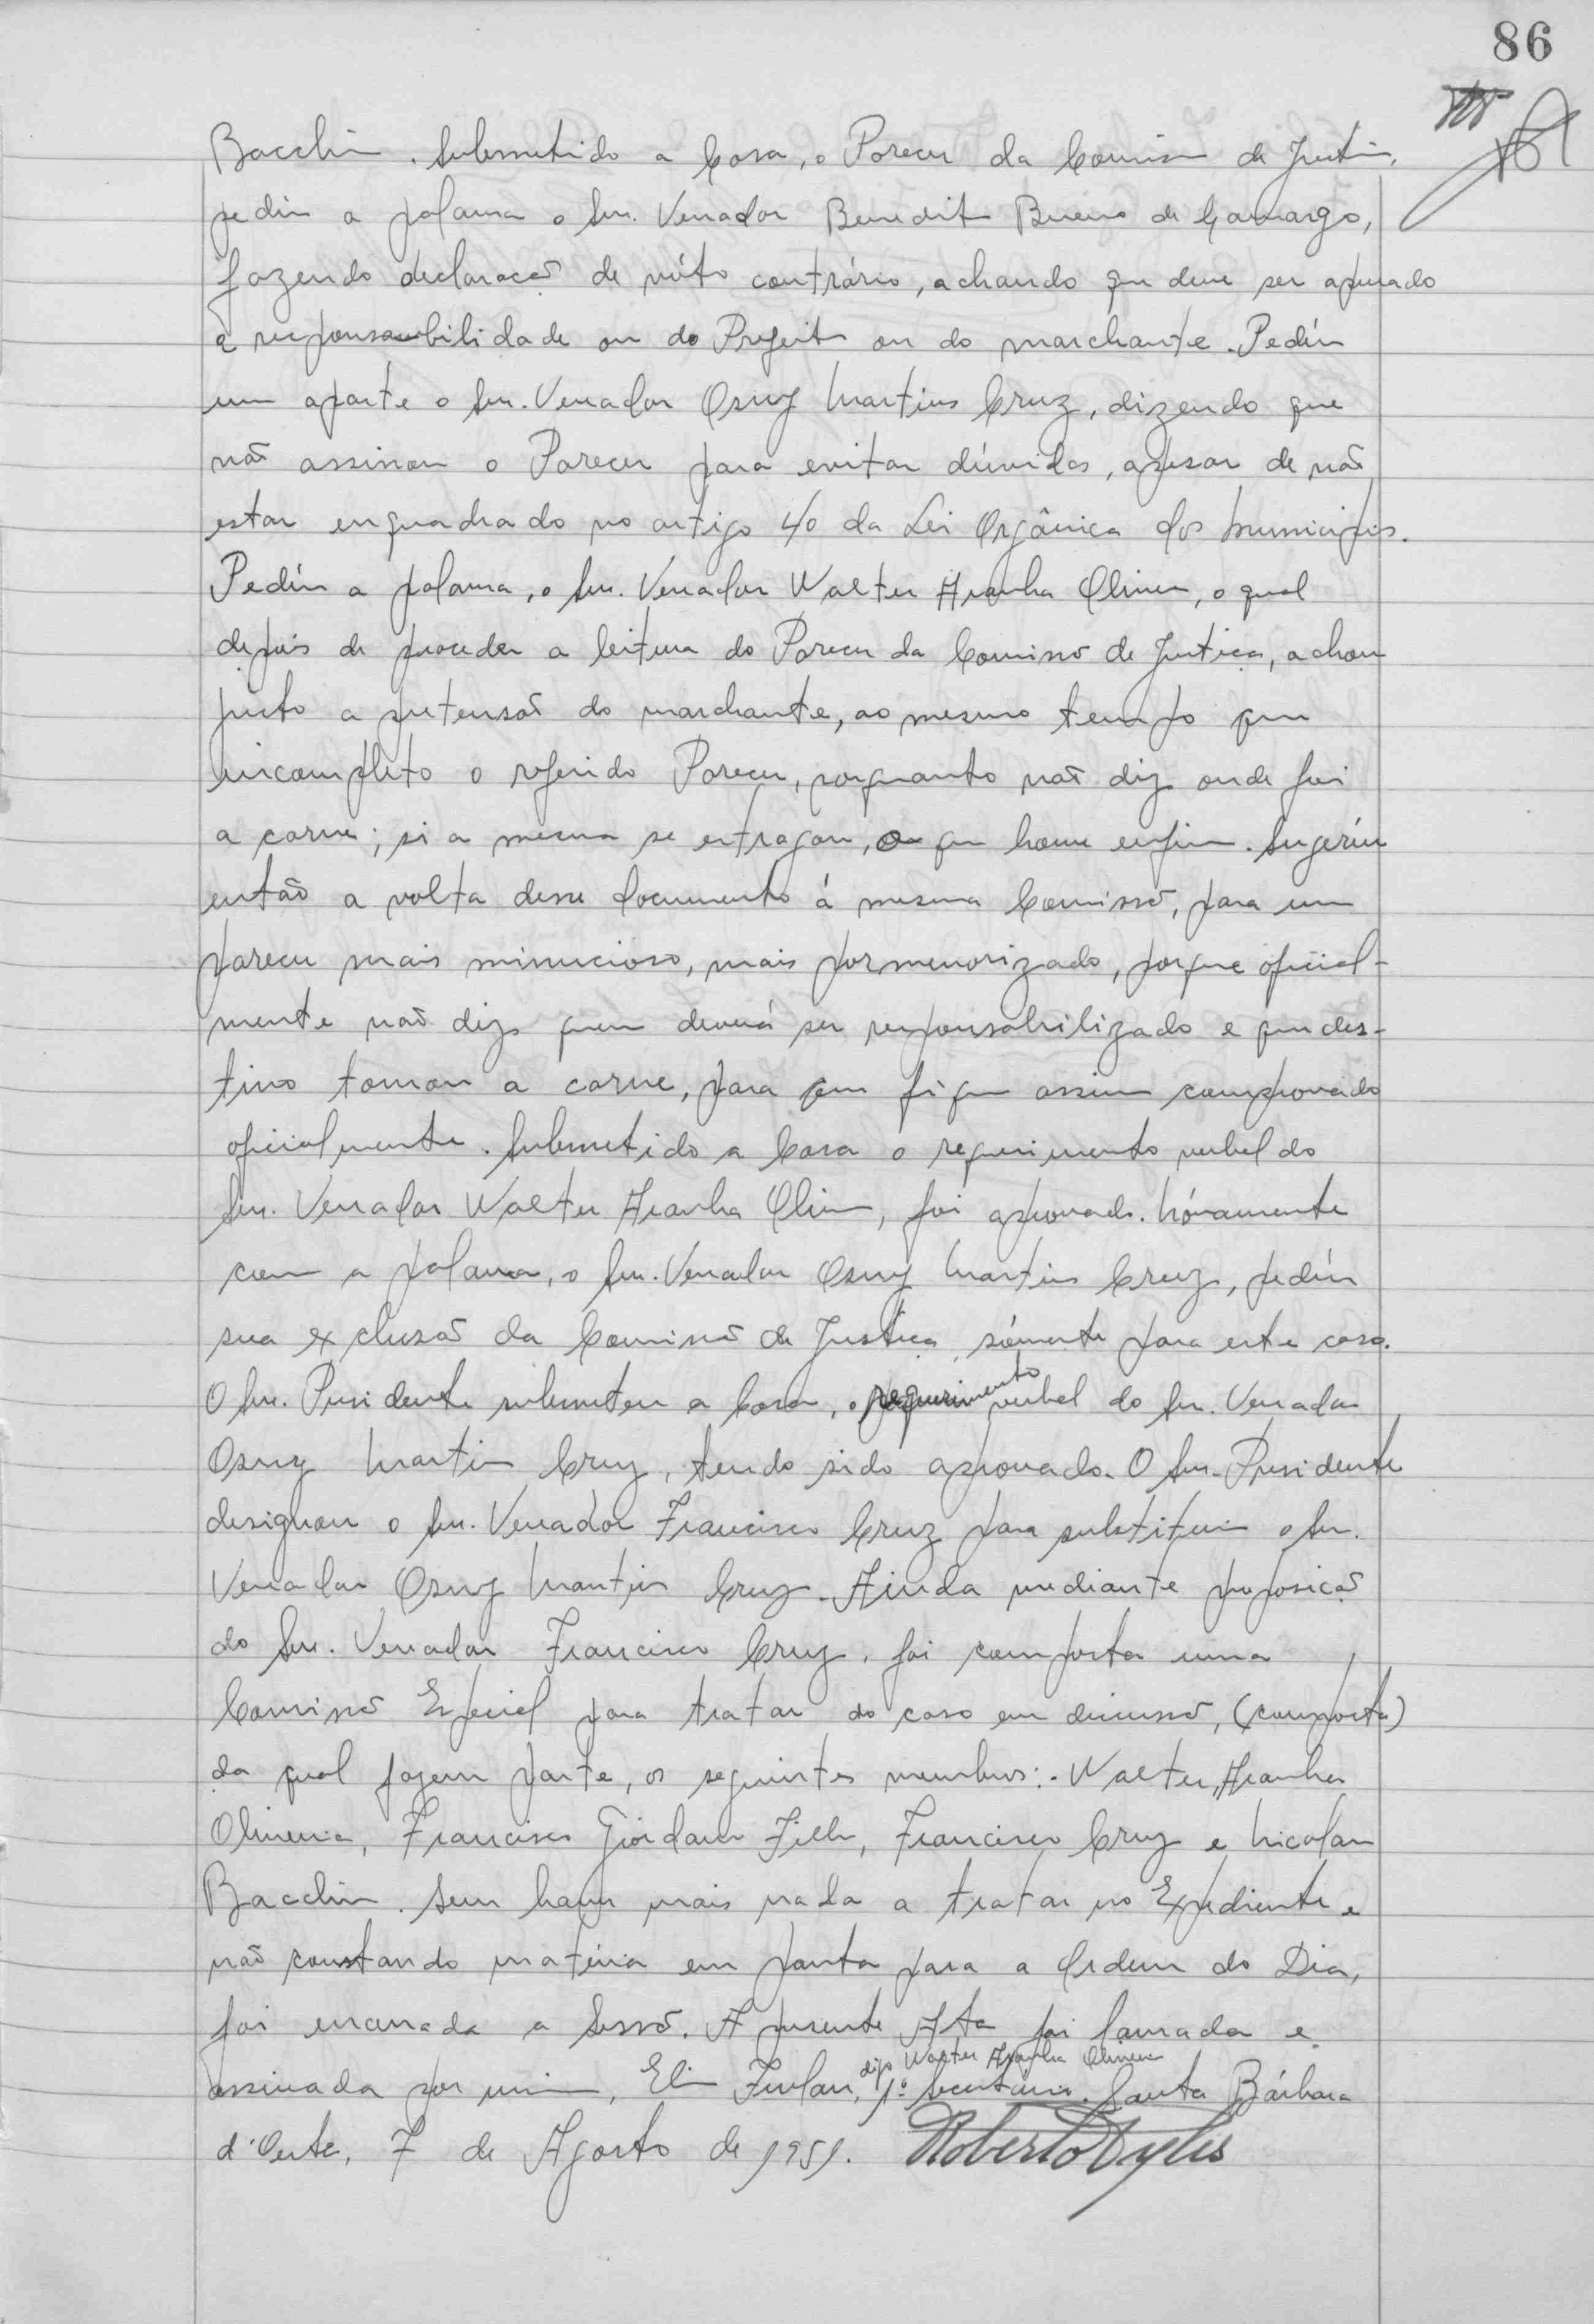 86
Bacchin. Submetido a Casa, o Parecer da Comissão de Justiça,
pediu a palavra o Snr. Vereador Benedito Bueno de Camargo,
fazendo declaração de vóto contrário, achando que deve ser apurado
a responsabilidade ou do Prefeito ou do marchante. Pediu
um aparte o Snr. Vereador Osny Martins Cruz, dizendo que
não assinou o Parecer para evitar dúvidas, apesar de não
estar enquadrado no artigo 40 da Lei Orgânica dos Municipios.
Pediu a palavra, o Snr. Vereador Walter Aranha Oliveira, o qual
depois de proceder a leitura do Parecer da Comissão de Justiça, achou
justo a pretensão do marchante, ao mesmo tempo que
incompleto o referido Parecer, porquanto não diz onde foi
a carne; si a mesma se estragou, o que houve enfim. Sugeriu
então a volta desse documento á mesma Comissão, para um
parecer mais minucioso, mais pormenorizado, porque oficial-
mente não diz quem deverá ser responsabilizado e que des-
tino tomou a carne, para que fique assim comprovado
oficialmente. Submetido a Casa o requerimento verbal do
Snr. Vereador Walter Aranha Oliveira, foi aprovado. Nóvamente
com a palavra, o Snr. Vereador Osny Martins Cruz, pediu
sua exclusão da Comissão de Justiça, sómente para este caso.
O Snr. Presidente submeteu a Casa, o requerimento verbal do Snr. Vereador
Osny Martins Cruz, tendo sido aprovado. O Snr. Presidente
designou o Snr. Vereador Francisco Cruz para substituir o Snr.
Vereador Osny Martins Cruz. Ainda mediante proposição
do Snr. Vereador Francisco Cruz, foi composta uma
Comissão Especial para tratar do caso em discussão, (composta)
da qual fazem parte, os seguintes membros:- Walter Aranha
Oliveira, Francisco Giordano Filho, Francisco Cruz e Nicolau
Bacchin. Sem haver mais nada a tratar no Expediente e
não constando matéria em pauta para a Ordem do Dia,
foi encerrada a Sessão. A presente Ata foi lavrada e
digo Walter Aranha Oliveira
assinada por mim, Eli Furlan, 1º Secretário. Santa Bárbara
d'Oeste, 7 de Agosto de 1951. Roberto